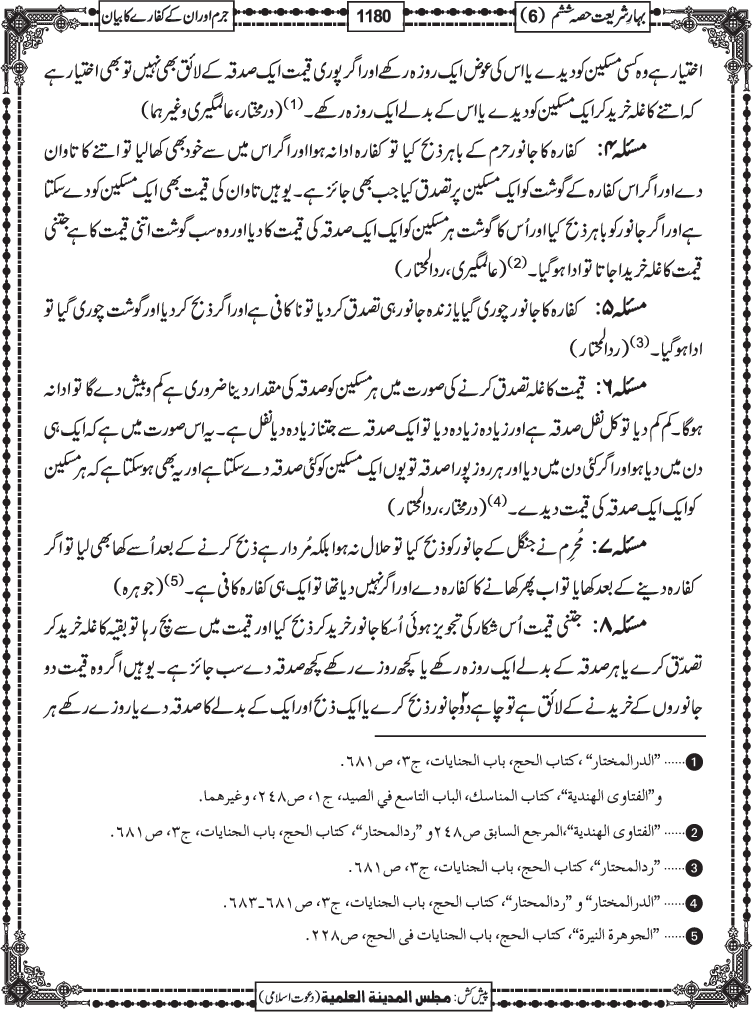 بہار شریعت حصہ ششم (6)
1180
جرم اور ان کے کفارے کا بیان
اختیار ہے وہ کسی مسکین کو دیدے یا اس کی عوض ایک روزہ رکھے اور اگر پوری قیمت ایک صدقہ کے لائق بھی نہیں تو بھی اختیار ہے
کہ اتنے کا غلہ خرید کر ایک مسکین کو دیدے یا اس کے بدلے ایک روزہ رکھے۔(1) (درمختار، عالمگیری وغیرہما)
مسئلہ ۴: کفارہ کا جانور حرم کے باہر ذبح کیا تو کفارہ ادا نہ ہوا اور اگر اس میں سے خود بھی کھا لیا تو اتنے کا تاوان
دے اور اگر اس کفارہ کے گوشت کو ایک مسکین پر تصدق کیا جب بھی جائز ہے۔ یوہیں تاوان کی قیمت بھی ایک مسکین کو دے سکتا
ہے اور اگر جانور کو باہر ذبح کیا اور اُس کا گوشت ہر مسکین کو ایک ایک صدقہ کی قیمت کا دیا اور وہ سب گوشت اتنی قیمت کا ہے جتنی
قیمت کا غلہ خریدا جاتا تو ادا ہوگیا۔(2) (عالمگیری، ردالمحتار)
مسئلہ ۵: کفارہ کا جانور چوری گیا یا زندہ جانور ہی تصدق کر دیا تو ناکافی ہے اور اگر ذبح کر دیا اور گوشت چوری گیا تو
ادا ہوگیا۔(3) (ردالمحتار)
مسئلہ ۶: قیمت کا غلہ تصدق کرنے کی صورت میں ہر مسکین کو صدقہ کی مقدار دینا ضروری ہے کم و بیش دے گا تو ادا نہ
ہوگا۔ کم کم دیا تو کل نفل صدقہ ہے اور زیادہ زیادہ دیا تو ایک صدقہ سے جتنا زیادہ دیا نفل ہے۔ یہ اس صورت میں ہے کہ ایک ہی
دن میں دیا ہو اور اگر کئی دن میں دیا اور ہر روز پورا صدقہ تو یوں ایک مسکین کو کئی صدقہ دے سکتا ہے اور یہ بھی ہوسکتا ہے کہ ہر مسکین
کو ایک ایک صدقہ کی قیمت دیدے۔(4) (درمختار، ردالمحتار)
مسئلہ ۷: مُحرِم نے جنگل کے جانور کو ذبح کیا تو حلال نہ ہوا بلکہ مُردار ہے ذبح کرنے کے بعد اُسے کھا بھی لیا تو اگر
کفارہ دینے کے بعد کھایا تو اب پھر کھانے کا کفارہ دے اور اگر نہیں دیا تھا تو ایک ہی کفارہ کافی ہے۔(5) (جوہرہ)
مسئلہ ۸: جتنی قیمت اُس شکار کی تجویز ہوئی اُسکا جانور خرید کر ذبح کیا اور قیمت میں سے بچ رہا تو بقیہ کا غلہ خرید کر
تصدّق کرے یا ہر صدقہ کے بدلے ایک روزہ رکھے یا کچھ روزے رکھے کچھ صدقہ دے سب جائز ہے۔ یوہیں اگر وہ قیمت دو
جانوروں کے خریدنے کے لائق ہے تو چاہے دو۲ جانور ذبح کرے یا ایک ذبح اور ایک کے بدلے کا صدقہ دے یا روزے رکھے ہر
1 ...... "الدرالمختار"، کتاب الحج، باب الجنایات، ج۳، ص۶۸۱.
و"الفتاوی الهندیة"، کتاب المناسك، الباب التاسع في الصید، ج۱، ص۲۴۸، وغیرهما.
2 ...... "الفتاوی الهندیة"،المرجع السابق ص۲۴۸و "ردالمحتار"، کتاب الحج، باب الجنایات، ج۳، ص۶۸۱.
3 ...... "ردالمحتار"، کتاب الحج، باب الجنایات، ج۳، ص۶۸۱.
4 ...... "الدرالمختار" و "ردالمحتار"، کتاب الحج، باب الجنایات، ج۳، ص۶۸۱۔۶۸۳.
5 ...... "الجوهرة النیرة"، کتاب الحج، باب الجنایات فی الحج، ص۲۲۸.
پیش کش: مجلس المدینة العلمیة (دعوت اسلامی)